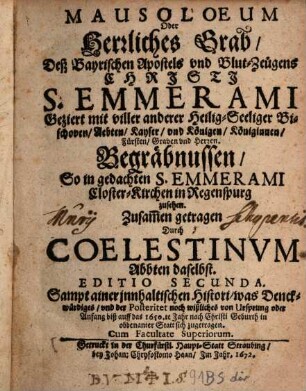 MAUSOLOEUM
Oder
Herrliches Grab /
Deß Bayrischen Apostels vnd Blut-Zeugens
CHRISTI
S. EMMERAMI
Geziert mit viller anderer Heilig-Seeliger Bi-
schoven / Aebten / Kayser / vnd Königen / Königinnen /
Fürsten / Graven vnd Herren.
Begräbnussen /
So in gedachten S. EMMERAMI
Closter-Kirchen in Regenspurg
zusehen.
Zusammen getragen
Durch
COELESTINVM
Abbten daselbst.
EDITIO SECUNDA.
Sampt ainer jnnhaltischen Histori / was Denck-
würdiges / vnd der Posteritet noch wißliches von Ursprung oder
Anfang biß auff das 1650.te Jahr nach Christi Geburth in
obbenanter Statt sich zugetragen.
Cum Facultate Superiorum.
Getruckt in der Churfürstl. Haupt-Statt Straubing /
bey Johann Chrysostomo Haan / Im Jahr. 1672.